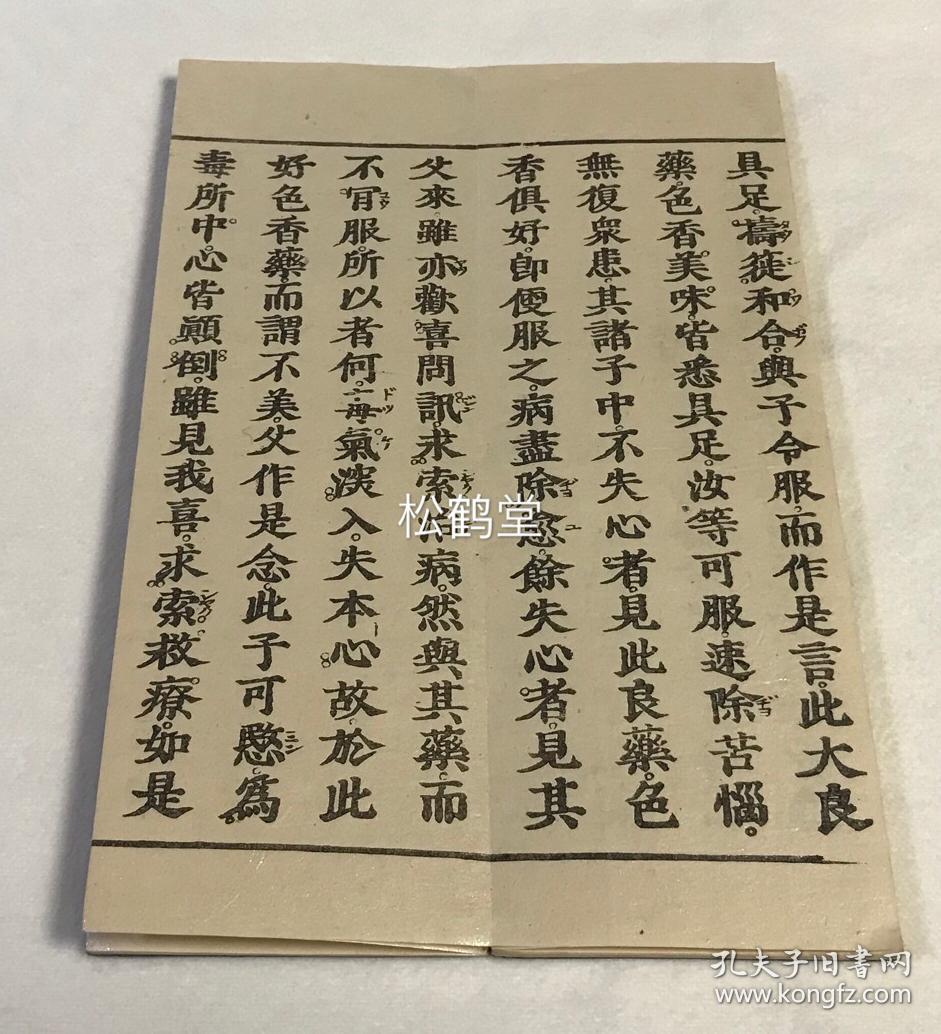 具足擣篵和合與子令服而作是言此大良
藥色香美味皆悉具足汝等可服速除苦惱
無復衆患其諸子中不失心者見此良藥色
香俱好卽便服之病盡除愈餘失心者見其
父來雖亦歡喜問訊求索治病然與其藥而
不肎服所以者何毒氣深入失本心故於此
好色香藥而謂不美父作是念此子可愍爲
毒所中心皆顚倒雖見我喜求索救療如是
松鹤堂
孔夫子旧书网
www.kongfz.com